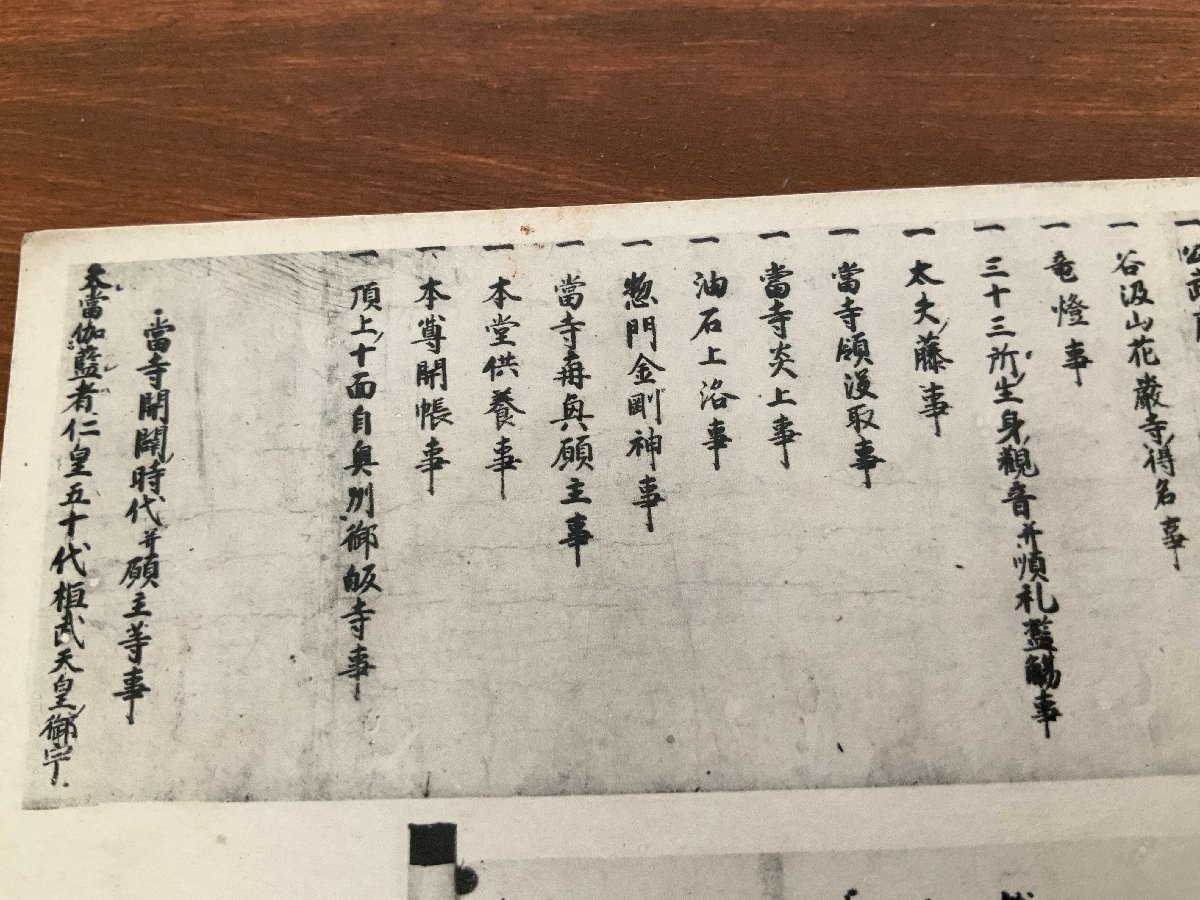 一谷汲山花嚴寺得名事
一竜燈事
一三十三所生身觀音并順礼濫觴事
一太夫藤事
一當寺領没取事
一當寺炎上事
一油石上洛事
一惣門金剛神事
一當寺再興願主事
一本堂供養事
一本尊開帳事
一頂上十面自奥州御皈寺事
當寺開闢時代并願主等事
夫當伽藍者仁皇五十代桓武天皇御宇